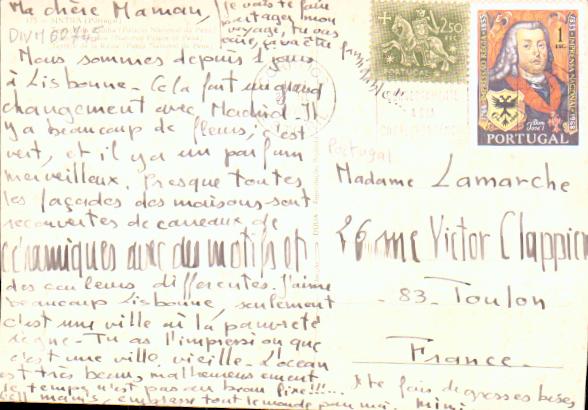 Ma chère Maman, je vais te faire
partager mon
voyage, tu vas
SINTRA (Portugal)
DIVM 60745
Nous sommes depuis 1 jours
à Lisbonne. Cela fait un grand
changement avec Madrid. Il
y a beaucoup de fleurs, c'est
vert, et il y a un parfum
merveilleux. Presque toutes
les façades des maisons sont
recouvertes de carreaux de
céramiques avec des motifs et
des couleurs différentes. J'aime
beaucoup Lisbonne, seulement
c'est une ville où la pauvreté
règne. Tu as l'impression que
c'est une ville vieille. L'océan
est très beau, malheureusement
le temps n'est pas au beau fixe!!!...
embrasse tout le monde par moi. Mimi
Je te fais de grosses bises
2$50
1
PORTUGAL
Portugal
Madame Lamarche
26 rue Victor Clappier
83. Toulon
France